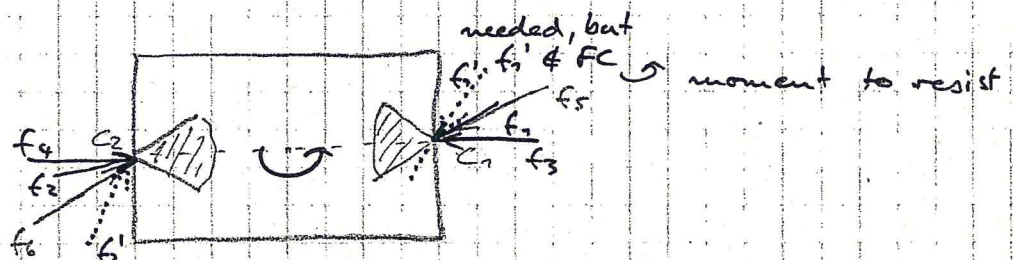 needed, but
f₁' ∉ FC
moment to resist
f₅
f₄ C₂
f₁
f₂
C₁
f₃
f₆
f₂'